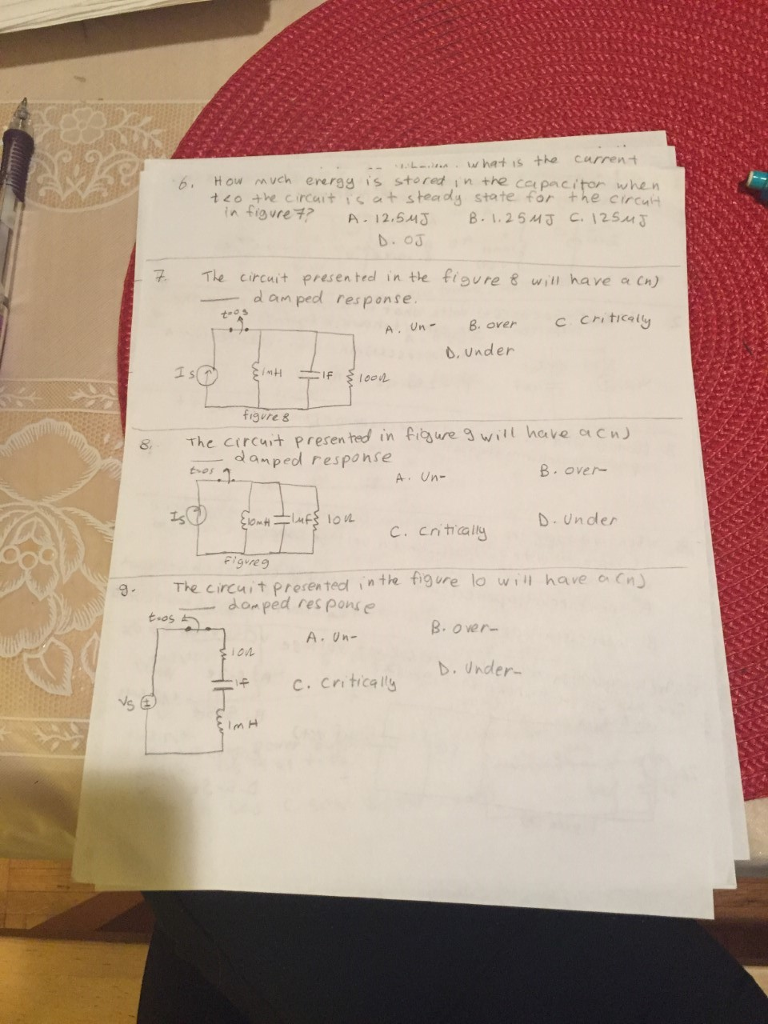 What is the current
6. How much energy is stored in the capacitor when
t<0 the circuit is at steady state for the circuit
in figure 7? A. 12.5MJ B. 1.25MJ C. 125MJ
D. 0J
7. The circuit presented in the figure 8 will have a(n)
___ damped response.
t=0s
A. Un- B. over C. critically
D. under
Is 1mH 1F 100Ω
figure 8
8. The circuit presented in figure 9 will have a(n)
___ damped response
t=0s
A. Un- B. over-
Is 10mH 1MF 10Ω
C. critically D. Under
Figure 9
9. The circuit presented in the figure 10 will have a(n)
___ damped response
t=0s
A. Un- B. over-
10Ω
C. critically D. Under-
1F
Vs
1mH